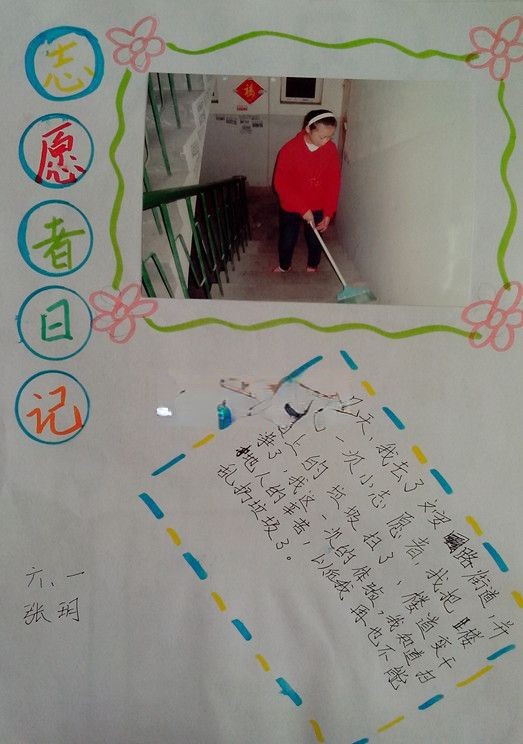 志愿者日记
福
天，我去了文安路街道，并
一次小志愿者，我把楼
道上的垃圾扫了，楼道变干
了，我这一次的体验，我知道扫
地人的辛苦，以后我再也不能
乱扔垃圾了。
六、一
张玥